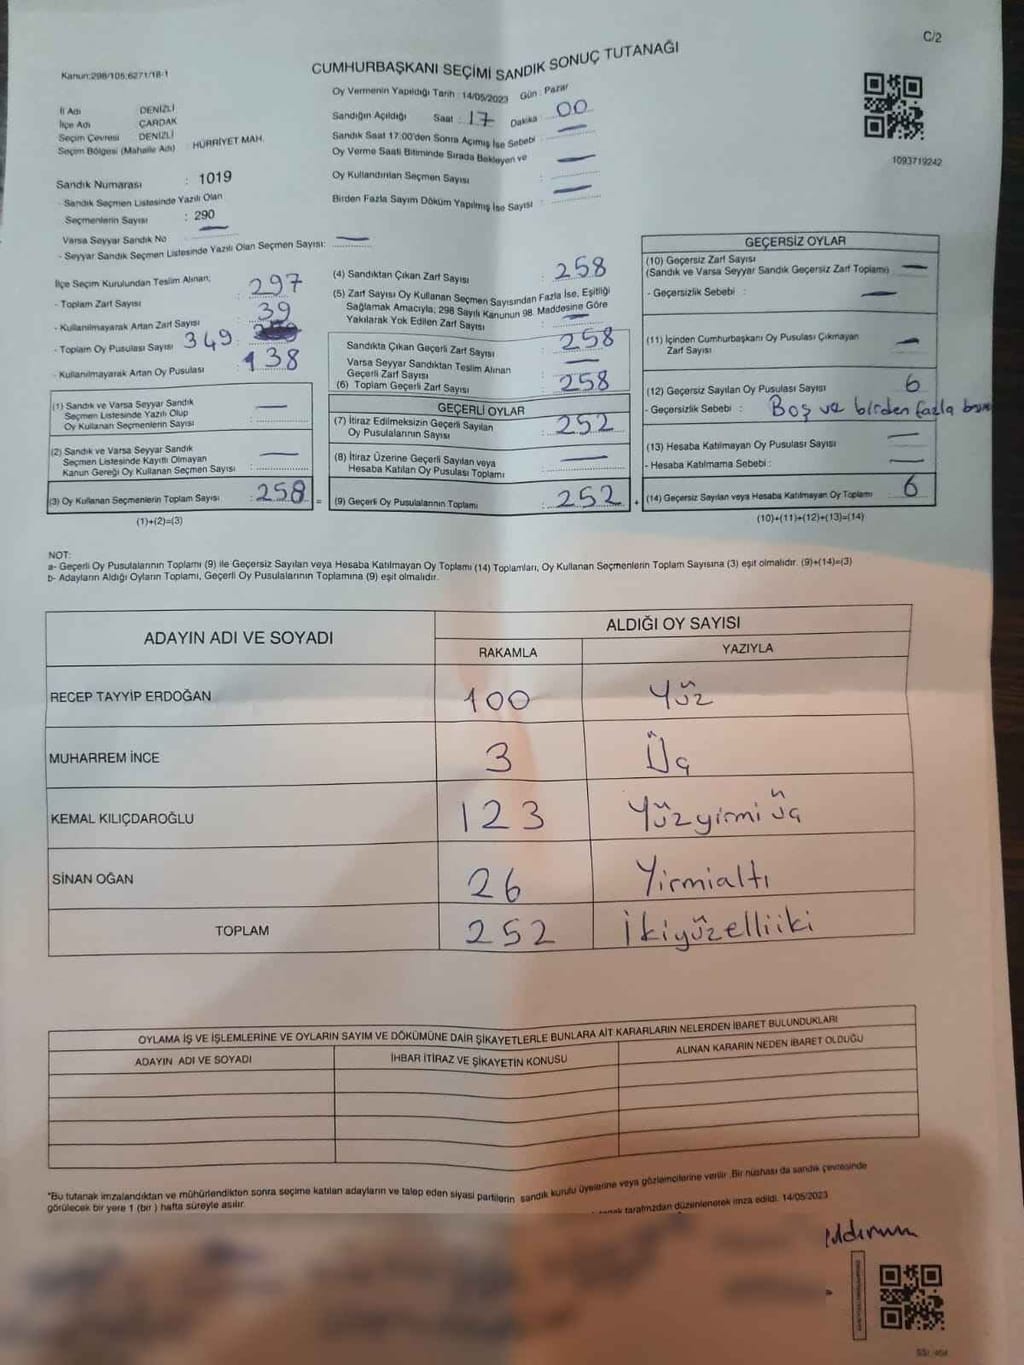 C/2
Kanun:298/105;6271/18-1
CUMHURBAŞKANI SEÇİMİ SANDIK SONUÇ TUTANAĞI
Oy Vermenin Yapıldığı Tarih : 14/05/2023 Gün : Pazar
İl Adı DENİZLİ
İlçe Adı ÇARDAK
Seçim Çevresi DENİZLİ
Seçim Bölgesi (Mahalle Adı) HÜRRİYET MAH.
Sandık Numarası : 1019
- Sandık Seçmen Listesinde Yazılı Olan
Seçmenlerin Sayısı : 290
Varsa Seyyar Sandık No
- Seyyar Sandık Seçmen Listesinde Yazılı Olan Seçmen Sayısı:
Sandığın Açıldığı Saat : 17 Dakika 00
Sandık Saat 17:00'den Sonra Açılmış İse Sebebi
Oy Verme Saati Bitiminde Sırada Bekleyen ve
Oy Kullandırılan Seçmen Sayısı
Birden Fazla Sayım Döküm Yapılmış İse Sayısı
1093719242
İlçe Seçim Kurulundan Teslim Alınan;
- Toplam Zarf Sayısı : 297
- Kullanılmayarak Artan Zarf Sayısı : 39
- Toplam Oy Pusulası Sayısı 349
- Kullanılmayarak Artan Oy Pusulası 138
(1) Sandık ve Varsa Seyyar Sandık
Seçmen Listesinde Yazılı Olup
Oy Kullanan Seçmenlerin Sayısı
(2) Sandık ve Varsa Seyyar Sandık
Seçmen Listesinde Kayıtlı Olmayan
Kanun Gereği Oy Kullanan Seçmen Sayısı
(3) Oy Kullanan Seçmenlerin Toplam Sayısı : 258 =
(1)+(2)=(3)
(4) Sandıktan Çıkan Zarf Sayısı : 258
(5) Zarf Sayısı Oy Kullanan Seçmen Sayısından Fazla İse, Eşitliği
Sağlamak Amacıyla; 298 Sayılı Kanunun 98. Maddesine Göre
Yakılarak Yok Edilen Zarf Sayısı
Sandıkta Çıkan Geçerli Zarf Sayısı : 258
Varsa Seyyar Sandıktan Teslim Alınan
Geçerli Zarf Sayısı
(6) Toplam Geçerli Zarf Sayısı : 258
GEÇERLİ OYLAR
(7) İtiraz Edilmeksizin Geçerli Sayılan
Oy Pusulalarının Sayısı : 252
(8) İtiraz Üzerine Geçerli Sayılan veya
Hesaba Katılan Oy Pusulası Toplamı
(9) Geçerli Oy Pusulalarının Toplamı : 252 +
GEÇERSİZ OYLAR
(10) Geçersiz Zarf Sayısı
(Sandık ve Varsa Seyyar Sandık Geçersiz Zarf Toplamı)
- Geçersizlik Sebebi :
(11) İçinden Cumhurbaşkanı Oy Pusulası Çıkmayan
Zarf Sayısı
(12) Geçersiz Sayılan Oy Pusulası Sayısı 6
- Geçersizlik Sebebi : Boş ve birden fazla
(13) Hesaba Katılmayan Oy Pusulası Sayısı
- Hesaba Katılmama Sebebi :
(14) Geçersiz Sayılan veya Hesaba Katılmayan Oy Toplamı 6
(10)+(11)+(12)+(13)=(14)
NOT:
a- Geçerli Oy Pusulalarının Toplamı (9) ile Geçersiz Sayılan veya Hesaba Katılmayan Oy Toplamı (14) Toplamları, Oy Kullanan Seçmenlerin Toplam Sayısına (3) eşit olmalıdır. (9)+(14)=(3)
b- Adayların Aldığı Oyların Toplamı, Geçerli Oy Pusulalarının Toplamına (9) eşit olmalıdır.
ADAYIN ADI VE SOYADI ALDIĞI OY SAYISI
RAKAMLA YAZIYLA
RECEP TAYYİP ERDOĞAN 100 Yüz
MUHARREM İNCE 3 Üç
KEMAL KILIÇDAROĞLU 123 Yüzyirmi üç
SİNAN OĞAN 26 Yirmialtı
TOPLAM 252 İkiyüzelliiki
OYLAMA İŞ VE İŞLEMLERİNE VE OYLARIN SAYIM VE DÖKÜMÜNE DAİR ŞİKAYETLERLE BUNLARA AİT KARARLARIN NELERDEN İBARET BULUNDUKLARI
ADAYIN ADI VE SOYADI İHBAR İTİRAZ VE ŞİKAYETİN KONUSU ALINAN KARARIN NEDEN İBARET OLDUĞU
"Bu tutanak imzalandıktan ve mühürlendikten sonra seçime katılan adayların ve talep eden siyasi partilerin sandık kurulu üyelerine veya gözlemcilerine verilir. Bir nüshası da sandık çevresinde
görülecek bir yere 1 (bir) hafta süreyle asılır.
tarafımızdan düzenlenerek imza edildi. 14/05/2023